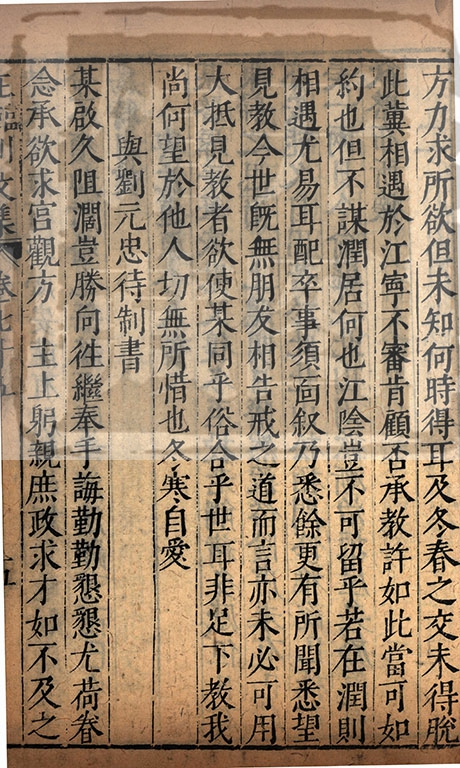 方力求所欲但未知何時得耳及冬春之交未得脫
此冀相遇於江寧不審肯顧否承教許如此當可如
約也但不謀潤居何也江陰豈不可留乎若在潤則
相遇尤易耳配卒事須面叙乃悉餘更有所聞悉望
見教今世旣無朋友相告戒之道而言亦未必可用
大抵見教者欲使某同乎俗合乎世耳非足下教我
尚何望於他人切無所惜也冬寒自愛
與劉元忠待制書
某啟久阻濶豈勝向徃繼奉手誨勤勤懇懇尤荷眷
念承欲求宮觀方 主上躬親庶政求才如不及之
王臨川文集 卷七十五